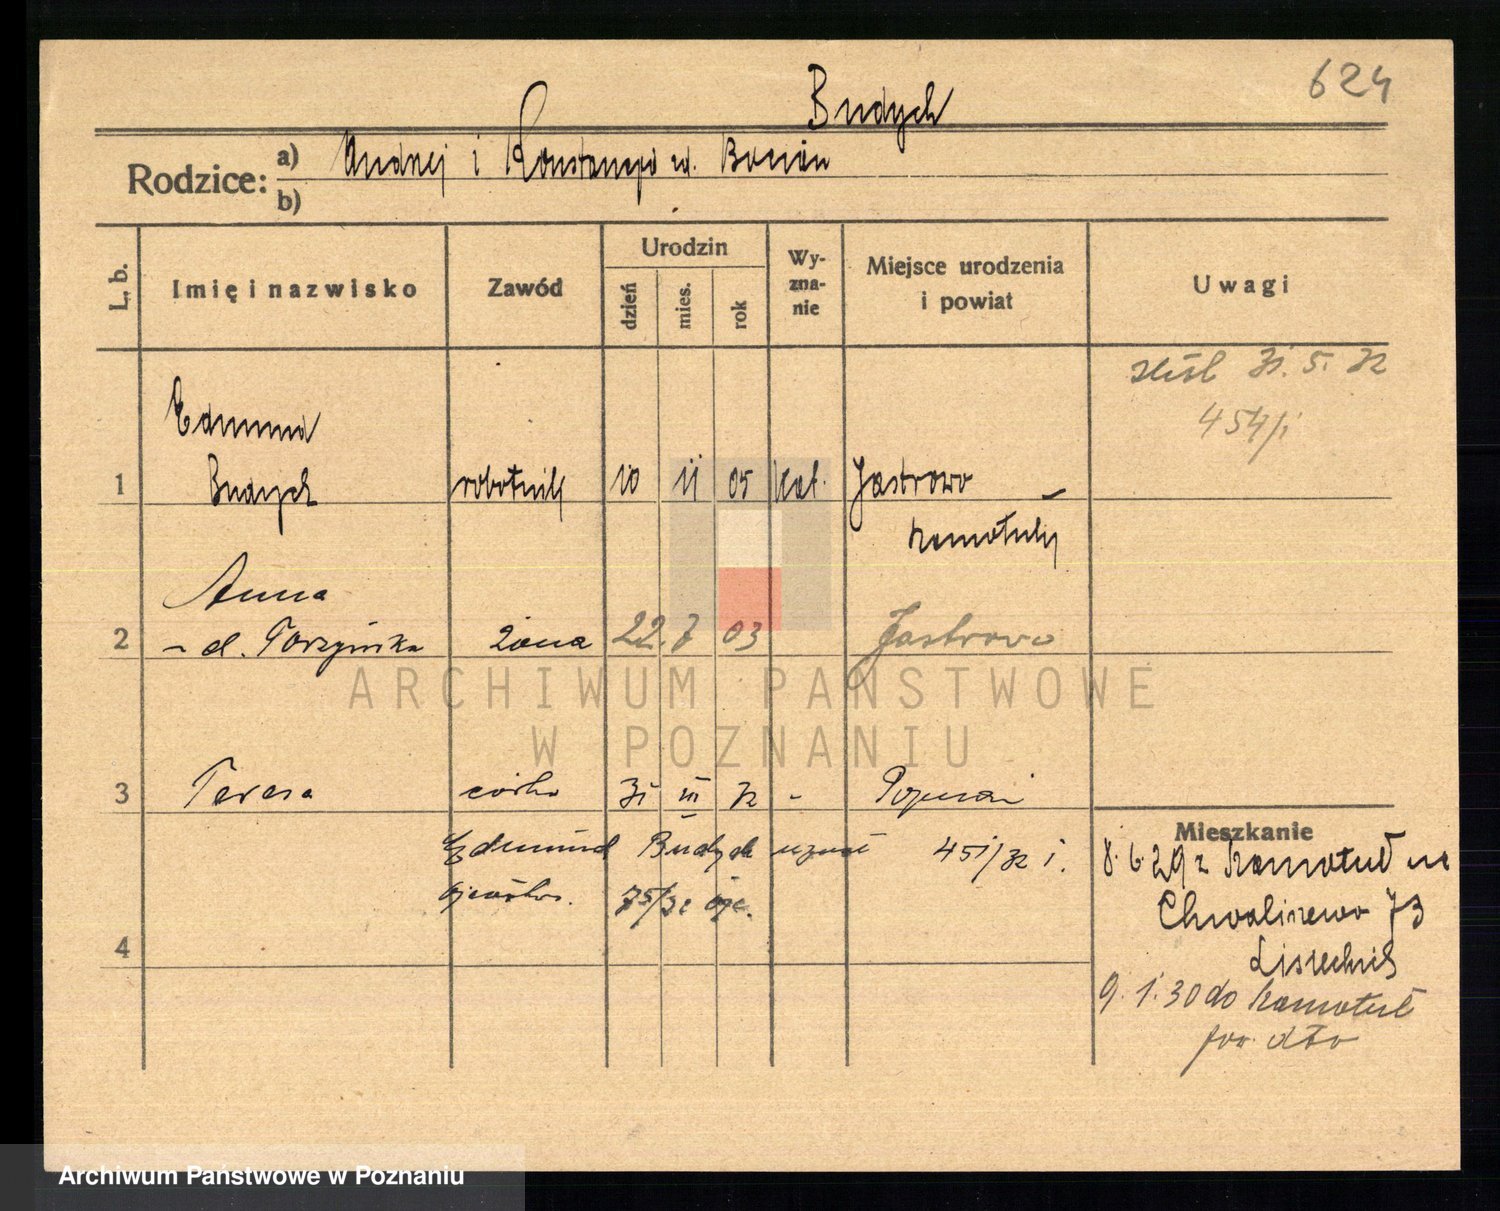 624
Budych
Rodzice: a) Andrzej i Konstancja zd. Bocian
b)
L. b. Imię i nazwisko Zawód Urodzin dzień mies. rok Wyznanie Miejsce urodzenia i powiat Uwagi
31. 5. 32
454/i
Edmund
1 Budych robotnik 10 11 05 kat. Jastrowo
Szamotuły
Anna
2 - d. Torzyńska żona 22. 7 03 Jastrowo
ARCHIWUM PAŃSTWOWE
W POZNANIU
3 Teresa córka 31 III 32 - Poznań
Mieszkanie
Edmund Budych uznał 451/32 i.
ojcostwo. 75/32
4
8. 6. 29 z Szamotuł na
Chwaliszewo 73
9. 1. 30 do Szamotuł
Archiwum Państwowe w Poznaniu